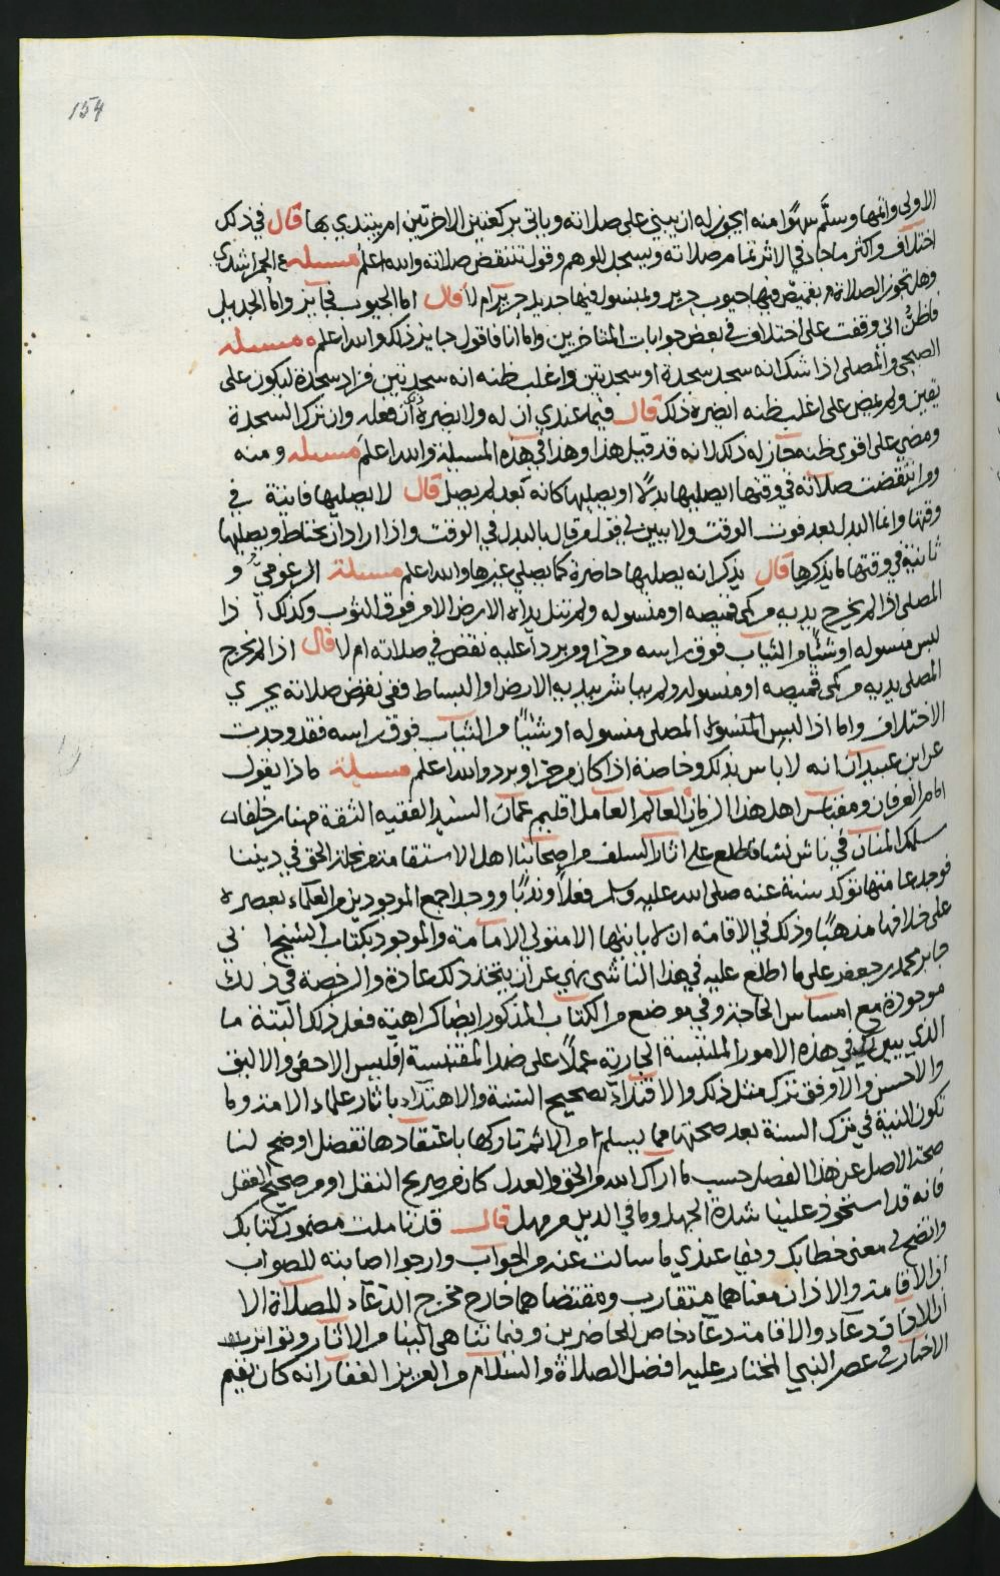 154
الاولى واتمها وسلّم سهوًا منه ايجوز له ان يبني على صلاته وياتي بركعتين الاخرتين ام يبتدي بها قال في ذلك
اختلاف واكثر ما جاء في الاثر تمام صلاته ويسجد للوهم وقول تنتقض صلاته والله اعلم مسئله
وهل تجوز الصلاة بقميص فيها جيوب حرير ومنسول فيها جديل حرير ام لا قال اما الجيوب فجايز واما الجديل
فاظن اني وقفت على اختلاف في بعض جوابات المتاخرين واما انا فاقول جايز ذلك والله اعلم مسئله
الصبحي والمصلي اذا شك انه سجد سجدة او سجدتين واغلب ظنه انه سجدتين فزاد سجدة ليكون على
يقين ولم يمض على اغلب ظنه ايضره ذلك قال فيما عندي ان له ولا يضره ان فعله وان ترك السجدة
ومضى على اقوى ظنه جاز له ذلك لانه قد قيل هذا وهذا في هذه المسئلة والله اعلم مسئله ومنه
ومن انتقضت صلاته في وقتها ايصليها بدلًا او يصليها كانه بعد لم يصل قال لا يصليها فايتة في
وقتها وانما البدل بعد فوت الوقت ولا يبين لي قول من قال بالبدل في الوقت واذا اراد ان يحتاط ويصليها
ثانية في وقتها ما يذكرها قال يذكر انه يصليها حاضرة كما يصلي غيرها والله اعلم مسئلة و
المصلي اذا لم يخرج يديه من كمي قميصه او منسوله ولم تنل يداه الارض الا من فوق الثوب وكذلك اذا
لبس منسوله او شيئًا من الثياب فوق راسه من حر او برد اعليه نقض في صلاته ام لا قال اذا لم يخرج
المصلي يديه من كمي قميصه او منسوله ولم يباشر بيديه الارض او البساط ففي نقض صلاته يجري
الاختلاف واما اذا لبس المصلي منسوله او شيئًا من الثياب فوق راسه فقد وجدت
عن ابن عبيدان انه لا باس بذلك وخاصة اذا كان من حر او برد والله اعلم مسئلة ماذا يقول
امام العرفان ومقباس اهل هذا الزمان العالم العامل اقليم عمان السيد الفقيه الثقة مهنا بن خلفان
سلمه المنان في ناش نشا فاطلع على اثار السلف من اصحابنا اهل الاستقامة من نحلة الحق في ديننا
فوجد عامتها توكد سنة عنه صلى الله عليه وسلم فعلًا وندبًا ووجد اجمع الموجودين من العلماء بعصره
على خلافها مذهبًا وذلك في الاقامة ان لا ياتيها الا متولي الامامة والموجود بكتاب الشيخ ابي
جابر محمد بن جعفر على ما اطلع عليه في هذا الناشي نهي عن ان يتخذ ذلك عادة والرخصة في ذلك
موجودة مع امساس الحاجة وفي موضع من الكتاب المذكور ايضا كراهية فعل ذلك البتة ما
الذي يبين لك في هذه الامور الملتبسة الجارية عملًا على ضد المقتبسة افليس الاحق والاليق
والاحسن والاوفق ترك مثل ذلك والاقتداء بصحيح السنة والاهتداء باثار علماء الامة وما
تكون النية في ترك السنة بعد صحتها مما يسلم من الاثم تاركها باعتقادها تفضل اوضح لنا
صحة الاصل عن هذا الفصل حسب ما اراك الله من الحق والعدل كان من صريح النقل او من صحيح العقل
فانه قد استحوذ علينا شدة الجهل وما في الدين من مهل قال قد تاملت مضمون كتابك
واتضح لي معنى خطابك وفيما عندي ما سالت عنه من الجواب وارجوا اصابته للصواب
ان الاقامة والاذان معناهما متقارب ومقتضاهما خارج مخرج الدعاء للصلاة الا
ان الاذان دعاء والاقامة دعاء خاص للحاضرين وفيما تناهى الينا من الاثار وتواترت
الاخبار في عصر النبي المختار عليه افضل الصلاة والسلام من العزيز الغفار انه كان يقيم